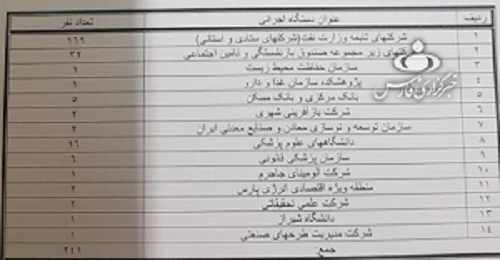 ردیف عنوان دستگاه اجرائی تعداد نفر
۱ شرکتهای تابعه وزارت نفت(شرکتهای ستادی و استانی) ۱۶۹
۲ شرکتهای زیر مجموعه صندوق بازنشستگی و تامین اجتماعی ۳۲
۳ سازمان حفاظت محیط زیست ۱
۴ پژوهشکده سازمان غذا و دارو ۱
۵ بانک مرکزی و بانک مسکن ۵
۶ شرکت بازآفرینی شهری ۲
۷ سازمان توسعه و نوسازی معادن و صنایع معدنی ایران ۲
۸ دانشگاههای علوم پزشکی ۱۶
۹ سازمان پزشکی قانونی ۶
۱۰ شرکت آلومینای جاجرم ۱
۱۱ منطقه ویژه اقتصادی انرژی پارس ۲
۱۲ شرکت علمی تحقیقاتی ۲
۱۳ دانشگاه شیراز ۱
۱۴ شرکت مدیریت طرحهای صنعتی ۱
جمع: ۲۴۱
خبرگزاری فارس